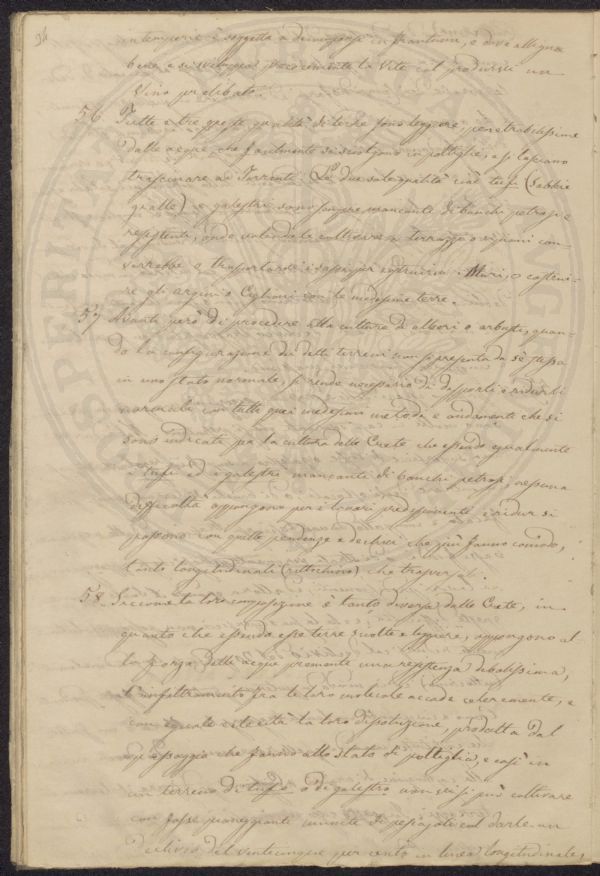 94
intemperie è soggetta a divenir in frantumi, e dove alligna
bene e si sviluppa precocemente la Vite col produrre un
Vino prelibato.
56 Tutte e tre queste qualità di terre sono leggere, penetrabilissime
dalle acque, che facilmente si sciolgono in poltiglia, e si lasciano
trascinare ai Torrenti. Le due sole qualità cioè tufi (sabbie
gialle) e galestri sono sempre mancanti di banchi petrosi e
resistenti, onde volendole coltivare a terrazze o ripiani con-
verrebbe o trasportarvi i sassi per costruirvi i Muri, o costrui-
re gli argini o Ciglioni con le medesime terre.
57 Avanti però di procedere alla cultura di alberi o arbusti, quan-
do la configurazione di detti terreni non si presenta da sè stessa
in uno stato normale, si rende necessario di disporli e ridurli
normali con tutti quei medesimi metodi e andamenti che si
sono indicati per la cultura delle Crete che essendo egualmente
i tufi ed i galestri mancanti di banchi petrosi, nessuna
difficoltà oppongono per i lavori predisponenti, e ridur si
possono con quelle pendenze e declivi che più fanno comodo,
tanto longitudinali (rittochino) che trasversali.
58 Siccome la loro composizione è tanto diversa dalle Crete, in
quanto che essendo esse terre sciolte e leggere, oppongono al
la forza delle acque premente una resistenza debolissima,
l'infiltramento fra le loro molecole accade celeremente, e
con eguale celerità la loro disposizione, prodotta dal
passaggio che fanno allo stato di poltiglia, e così in
un terreno di tufo o di galestro non vi si può coltivare
con fosse pianeggianti munite di pescajoli col darle un
Declivio del venticinque per cento in linea longitudinale,